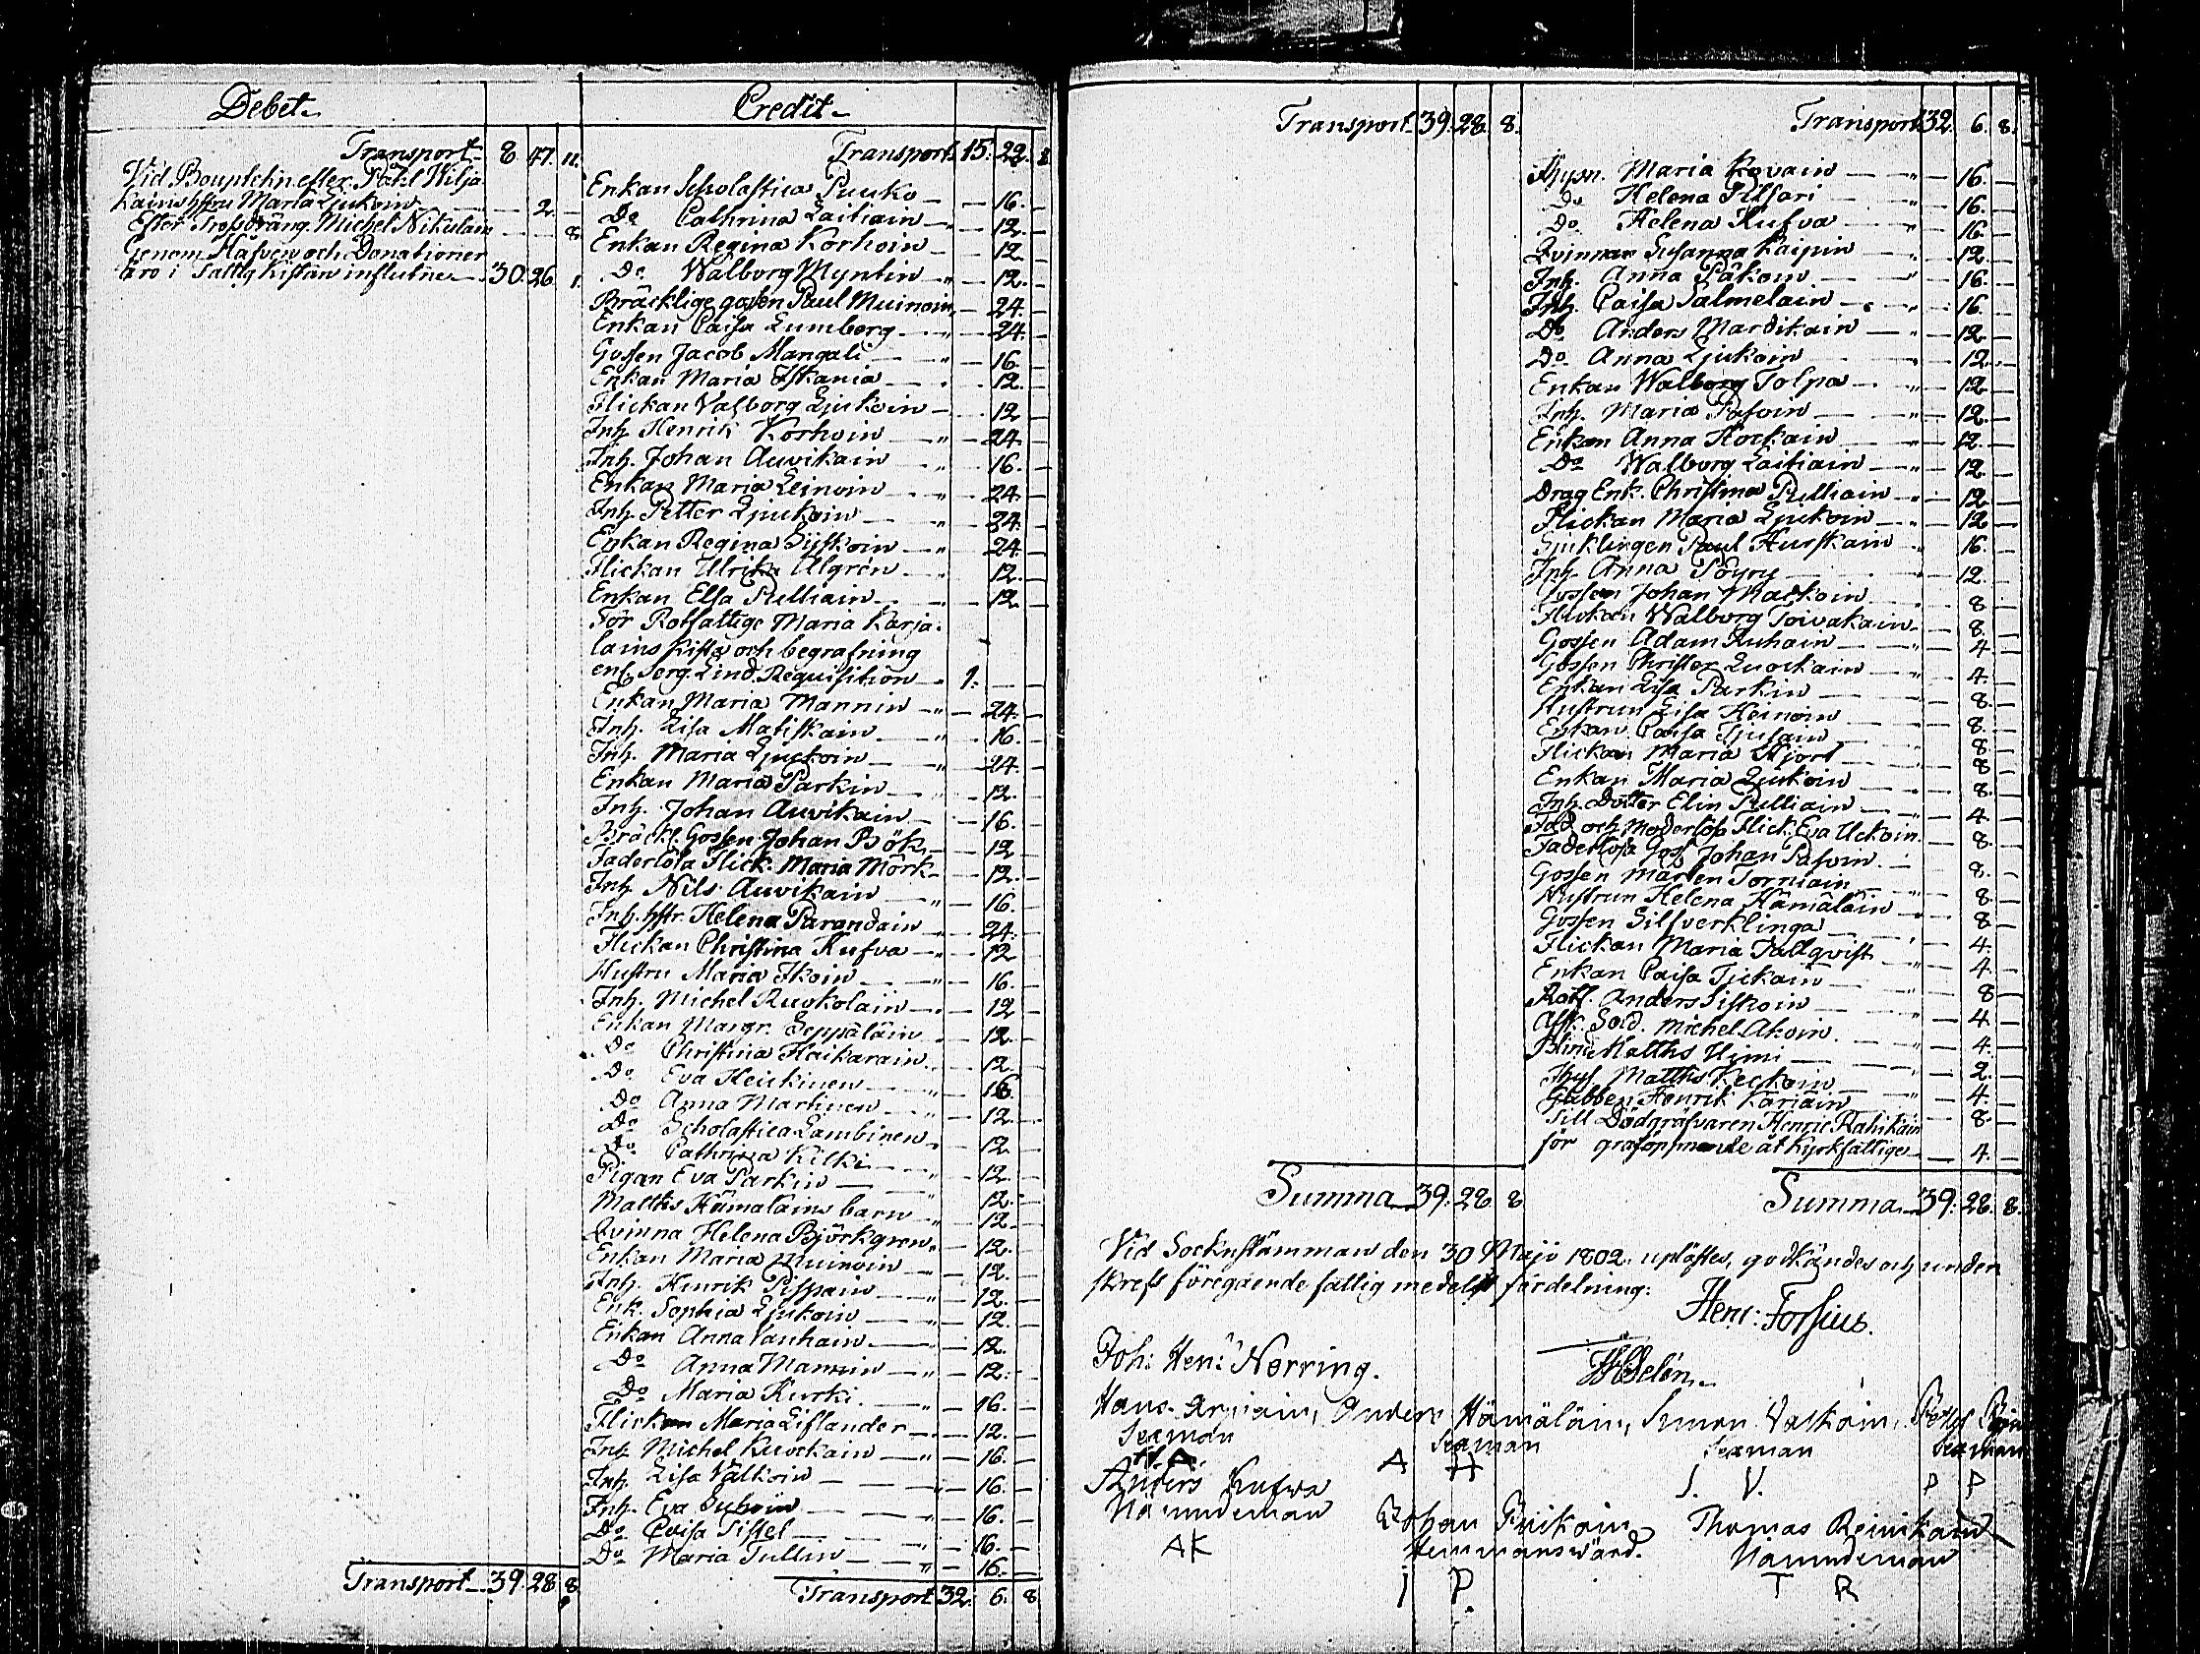 Debet
Transport 8. 47. 11.
Vid Bouptekn. efter Påhl Wilja-
kains hstru Maria Ljukoin 2.
Efter Trossdräng. Michel Nikulain 8.
Genom Håfven och Donationer
äro i Fattig Kistan influtne 30. 26. 1.
Transport 39. 28. 8.
Credit
Transport 15. 22. 8.
Enkan Scholastica Puuko 16.
Do Cathrina Laitiain 12.
Enkan Regina Korhoin 12.
Do Walborg Myntin 12.
Bräcklige gossen Paul Muinoin 24.
Enkan Caisa Lumberg 24.
Gossen Jacob Mangali 16.
Enkan Maria Iskania 12.
Flickan Valborg Ljukoin 12.
Inh. Henrik Korhoin 24.
Inh. Johan Auvikain 16.
Enkan Maria Leinoin 24.
Inh. Petter Ljukoin 24.
Enkan Regina Sijskoin 24.
Flickan Ulrika Algren 12.
Enkan Elsa Pulliain 12.
För Rotfattige Maria Karja-
lains Kista och begrafning
enl. Serg. Lind. Requisition 1.
Enkan Maria Mannin 24.
Inh. Lisa Matiskain 16.
Inh. Maria Ljuckoin 24.
Enkan Maria Parkin 12.
Inh. Johan Auvikain 16.
Bräckl. Gossen Johan Bök 12.
Faderlösa Flick. Maria Mörk 12.
Inh. Nils Auvikain 16.
Inh. hstr. Helena Parandain 24.
Flickan Christina Kufva 12
Hustru Maria Ikoin 16.
Inh. Michel Ruokolain 12
Enkan Margr. Seppäläin 12.
Do Christina Haikarain 12.
Do Eva Heickinen 16.
Do Anna Martinen 12.
Do Scholastica Lambinen 12.
Do Cathrina Kilki 12.
Pigan Eva Parkin 12.
Matths Hämäläins barn 12.
Qvinna Helena Björkgren 12.
Enkan Maria Muinoin 12.
Inh. Henrik Pispain 12.
Enk. Sophia Ljukoin 12.
Enkan Anna Vanhain 12.
Do Anna Mannin 12.
Do Maria Kurki 16.
Flickan Maria Liflander 12.
Inh. Michel Kuockain 16.
Inh. Lisa Välkoin 16.
Inh. Eva Suhoin 16.
Do Caisa Sissel 16.
Do Maria Tullin 16.
Transport 32. 6. 8.
Transport 39. 28. 8.
Summa 39. 28. 8
Transport 32. 6. 8.
Maria Kovain 16.
Do Helena Pilfari 16.
Do Helena Kufva 16.
Qvinnan Susanna Kaipin 12.
Inh. Anna Päkoin 16.
Inh. Caisa Salmelain 16.
Do Anders Mardikain 12.
Do Anna Ljukoin 12.
Enkan Walborg Tolpa 12.
Inh. Maria Pasoin 12.
Enkan Anna Hockain 12.
Do Walborg Laitiain 12.
Drag Enk. Christina Pulliain 12.
Flickan Maria Ljukoin 12
Sjuklingen Paul Hurskain 16.
Inh. Anna Pöyry 12.
Gossen Johan Mackoin 8.
Flickan Walborg Toivakain 8.
Gossen Adam Auhain 4.
Gossen Christer Luockain 4.
Enkan Lisa Parkin 8.
Hustrun Lisa Heinoin 8.
Enkan Caisa 8.
Flickan Maria Hjort 8.
Enkan Maria Ljukoin 8.
Inh. Dotter Elin Pulliain 4.
Fad. och Moderlösa Flick. Eva Uckoin 8.
Faderlösa Goss. Johan Pasoin 8.
Gossen Mårten Torniain 8.
Hustrun Helena Hämäläin 8.
Gossen Silfverklinga 4.
Flickan Maria Tallqvist 4.
Enkan Caisa Tickain 8
Rotf. Anders Siskoin 4.
Afsk. Sold. Michel Akoin 4.
Blind Matths Himi 2.
Matths Keckoin 4.
Gubben Henrik Käriäin 8.
Till Dödgräfvaren Henric Rahikain
för graföppnande åt kyrkfattige 4.
Summa 39. 28. 8.
Vid Socknstämman den 30 Maji 1802. uplästes, godkändes och under
skrefs föregående fattig medels fördelning:
Henr: Forsius.
Joh: Hen: Norring. Selén
Hans , Anders Hämäläin, Simon Vatkain,
Sexman Sexman Sexman Sexman
H A. A H S. V. P P
Anders Kufwa
Nämndeman Johan Thomas Reinikain
AK Hemmanswärd. Nämndeman
I P. T R